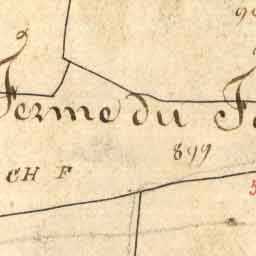 Ferme du
899
CH F